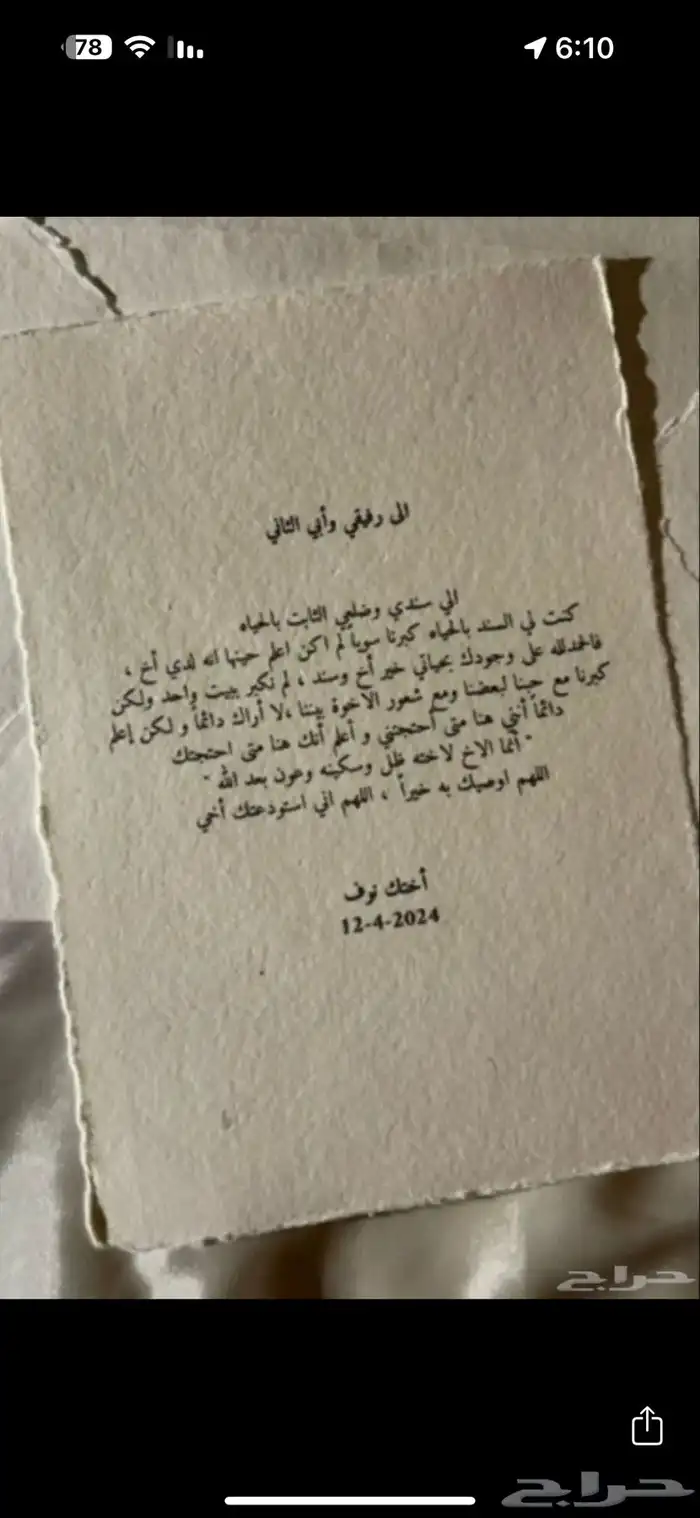 78
6:10
الى رفيقي وأبي الثاني
الي سندي وضلعي الثابت بالحياه
كنت لي السند بالحياه كبرنا سوياً لم اكن اعلم حينها انه لدي أخ ،
فالحمدلله على وجودك بحياتي خير أخ وسند ، لم نكبر ببيت واحد ولكن
كبرنا مع حبنا لبعضنا ومع شعور الاخوة بيننا ،لا أراك دائماً و لكن إعلم
دائماً أنني هنا متى أحتجتني و أعلم أنك هنا متى احتجتك
" أنما الاخ لاخته ظل وسكينه وعون بعد الله "
اللهم اوصيك به خيراً ، اللهم اني استودعتك أخي
أختك نوف
12-4-2024
حراج
حراج